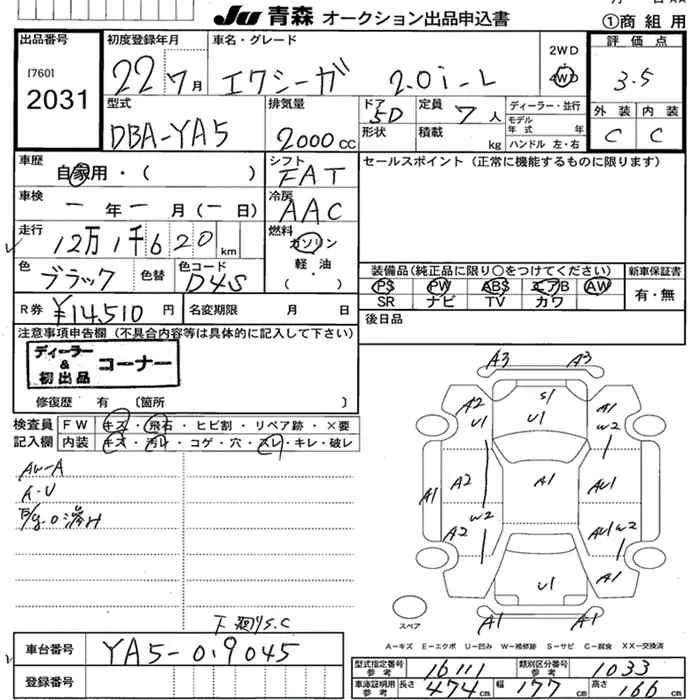 JU 青森 オークション出品申込書
①商組用
出品番号
[760]
2031
初度登録年月
22 7月
車名・グレード
エクシーガ 2.0i-L
2WD
4WD
評価点
3.5
外装 内装
C C
型式
DBA-YA5
排気量
2000cc
ドア
5D
形状
定員
7人
積載
kg
ディーラー・並行
モデル年式 年
ハンドル 左・右
車歴
自家用・( )
シフト
FAT
セールスポイント(正常に機能するものに限ります)
車検
ー年ー月(ー日)
冷房
AAC
走行
12万1千620km
燃料
ガソリン
軽・油
( )
色
ブラック
色替
色コード
D4S
装備品(純品品に限り○をつけてください)
新車保証書
PS PW ABS エアB AW
SR ナビ TV カワ
有・無
R券 ¥14,510円
名変期限 月 日
後日品
注意事項申告欄(不具合内容等は具体的に記入して下さい)
ディーラー & 初出品 コーナー
修復歴 有 〔箇所 〕
検査員記入欄
FW キズ・飛石・ヒビ割・リペア跡・×要
内装 キズ・汚レ・コゲ・穴・スレ・キレ・破レ
AW-A
A・U
A3 A3
A2 U1 S1 U1 A1 W2
A1 A2 A1 AU1 A1
A2 W2 AU1 W2
U1 A1
A1 A1
スペア
A=キズ E=エクボ U=凹み W=補修跡 S=サビ C=腐食 XX=交換済
下廻りS.C
車台番号 YA5-019045
登録番号
型式指定番号 参考 16111
類別区分番号 参考 1033
車庫証明用 参考 長さ 474cm 幅 177cm 高さ 166cm